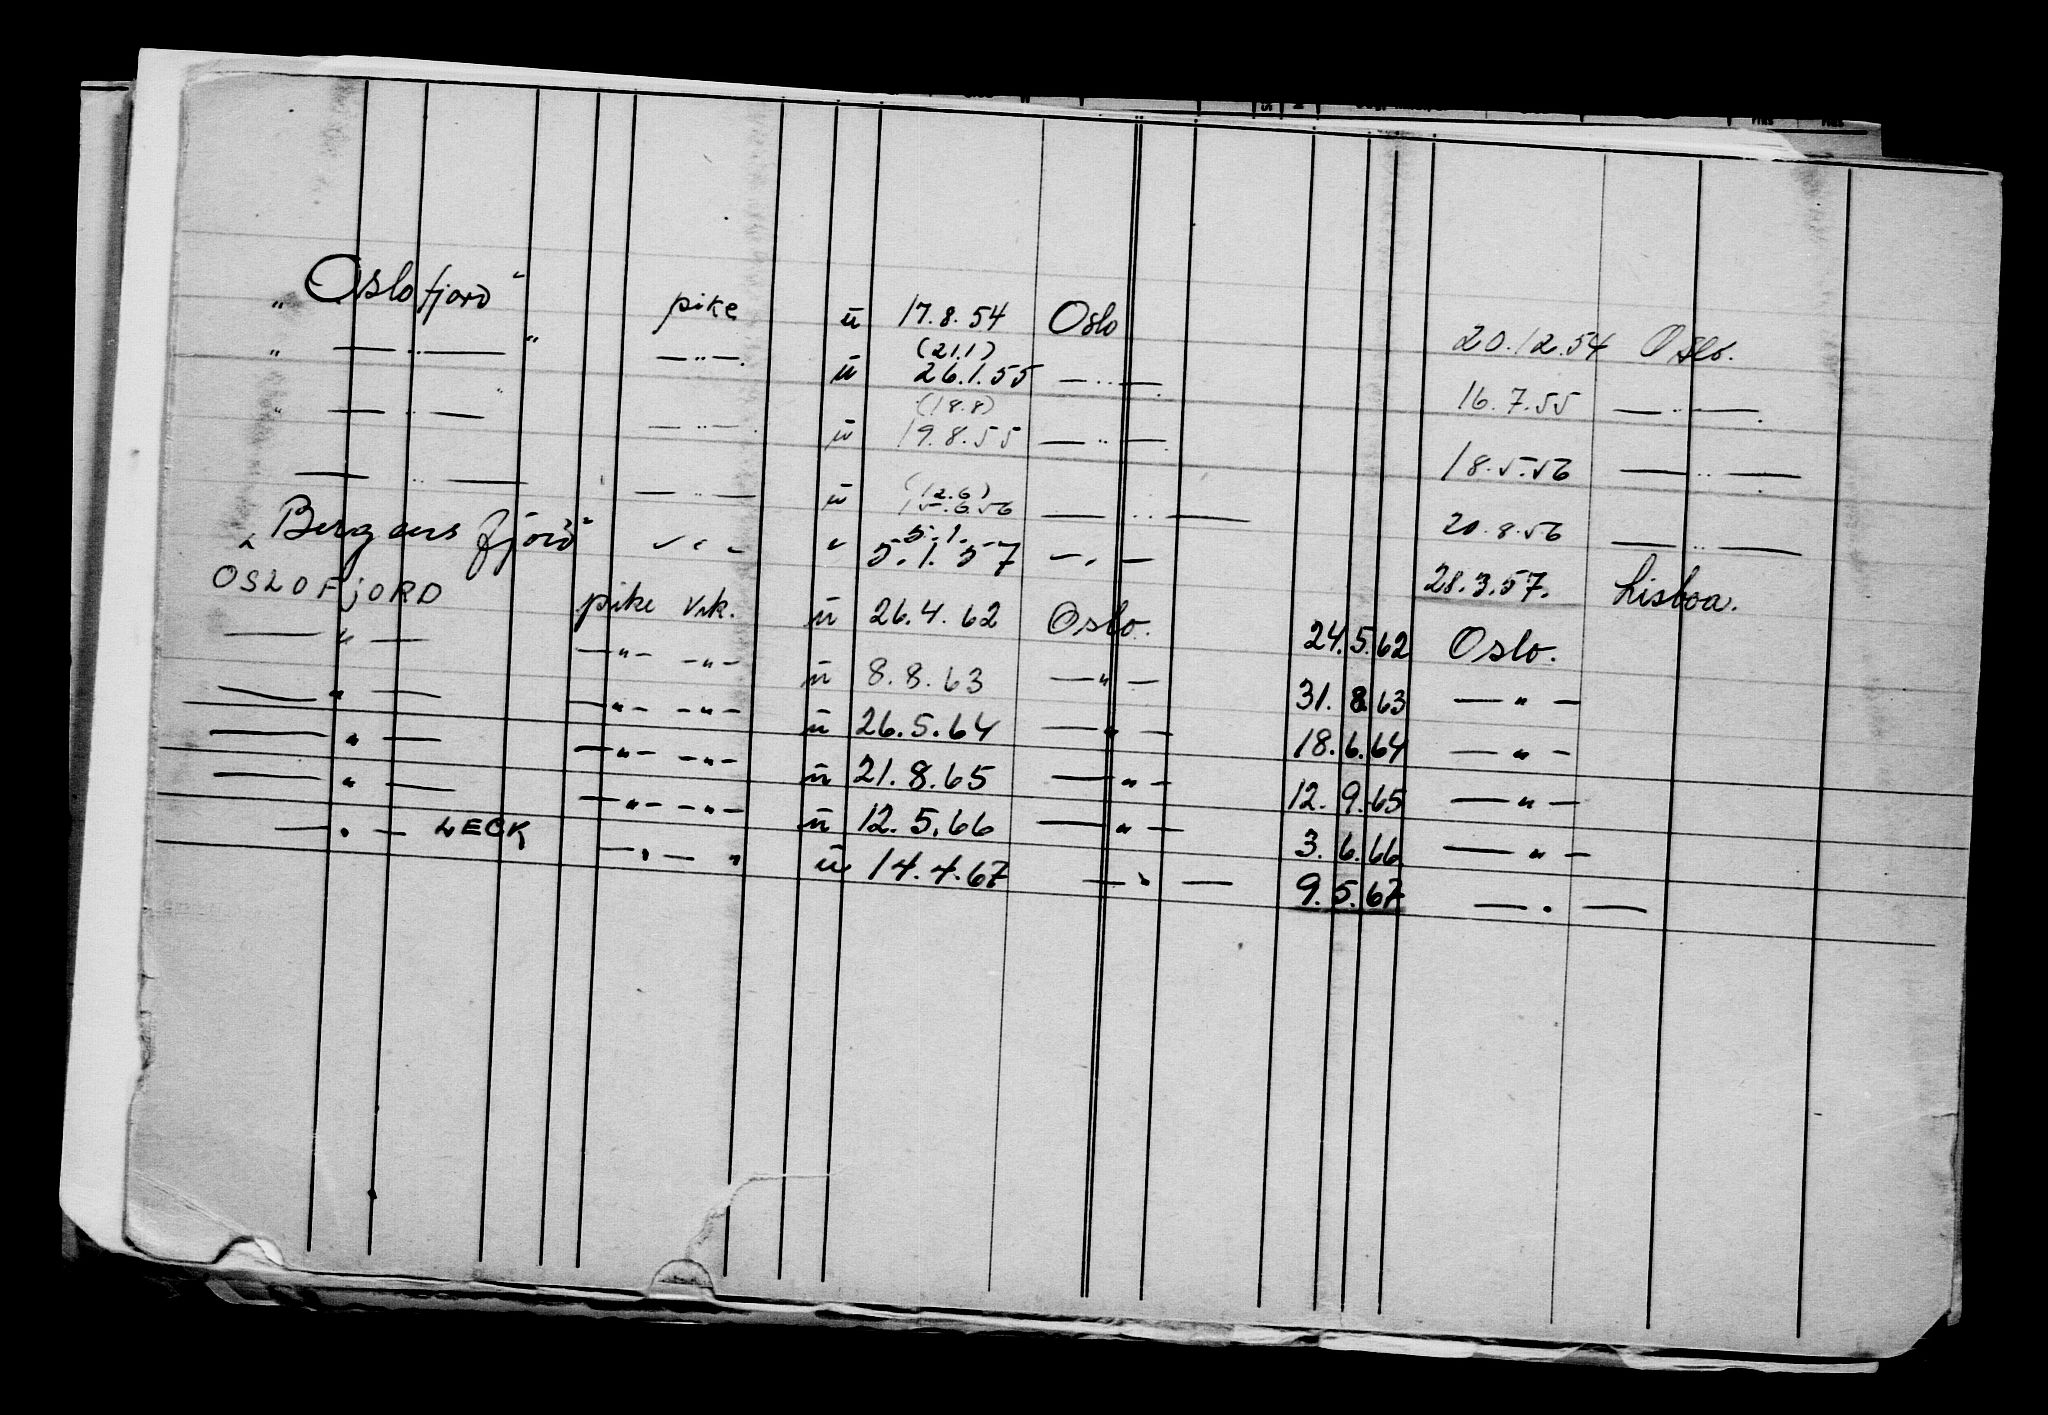 „ Oslofjord “ pike u 17.8.54 Oslo 20.12.54 Oslo.
„ —— „ —— “ — „ — . u (21.1) 26.1.55 — „ — . 16.7.55 — „ — .
„ —— „ —— “ — „ — . u (18.8) 19.8.55 — „ — . 18.5.56 — „ — .
—— „ —— — „ — u (12.6) 15.6.56 — „ — 20.8.56 — „ —
„ Bergensfjord “ — „ — „ 5.1. 5.1.57 — „ — 28.3.57. Lisboa.
OSLOFJORD pike vik. u 26.4.62 Oslo. 24.5.62 Oslo.
—— „ —— — „ — — „ — u 8.8.63 — „ — 31.8.63 — „ —
—— „ —— — „ — — „ — u 26.5.64 — „ — 18.6.64 — „ —
—— „ —— — „ — — „ — u 21.8.65 — „ — 12.9.65 — „ —
—— „ —— — „ — — „ — u 12.5.66 — „ — 3.6.66 — „ —
—— „ —— LECK — „ — „ u 14.4.67 — „ — 9.5.67 — „ —